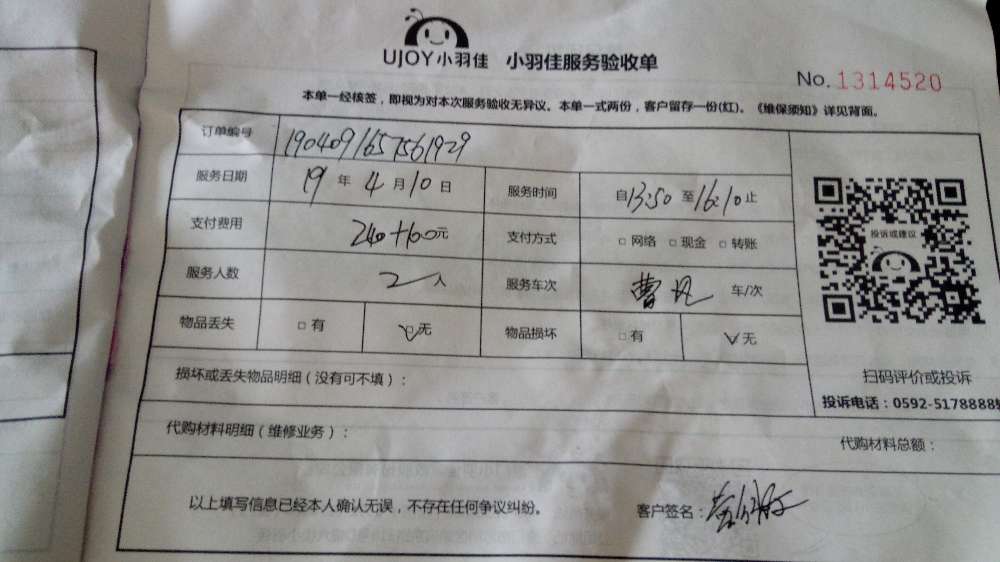 UJOY小羽佳 小羽佳服务验收单
No. 1314520
本单一经核签，即视为对本次服务验收无异议。本单一式两份，客户留存一份(红)。《维保须知》详见背面。
订单编号 1904091657561929
服务日期 19 年 4 月 10 日 服务时间 自13:50 至16:10止
支付费用 240+100元 支付方式 □ 网络 □ 现金 □ 转账
服务人数 2 人 服务车次 曹 车/次
物品丢失 □ 有 无 物品损坏 □ 有 无
投诉或建议
扫码评价或投诉
投诉电话：0592-5178888
损坏或丢失物品明细（没有可不填）：
代购材料明细（维修业务）： 代购材料总额：
以上填写信息已经本人确认无误，不存在任何争议纠纷。 客户签名：